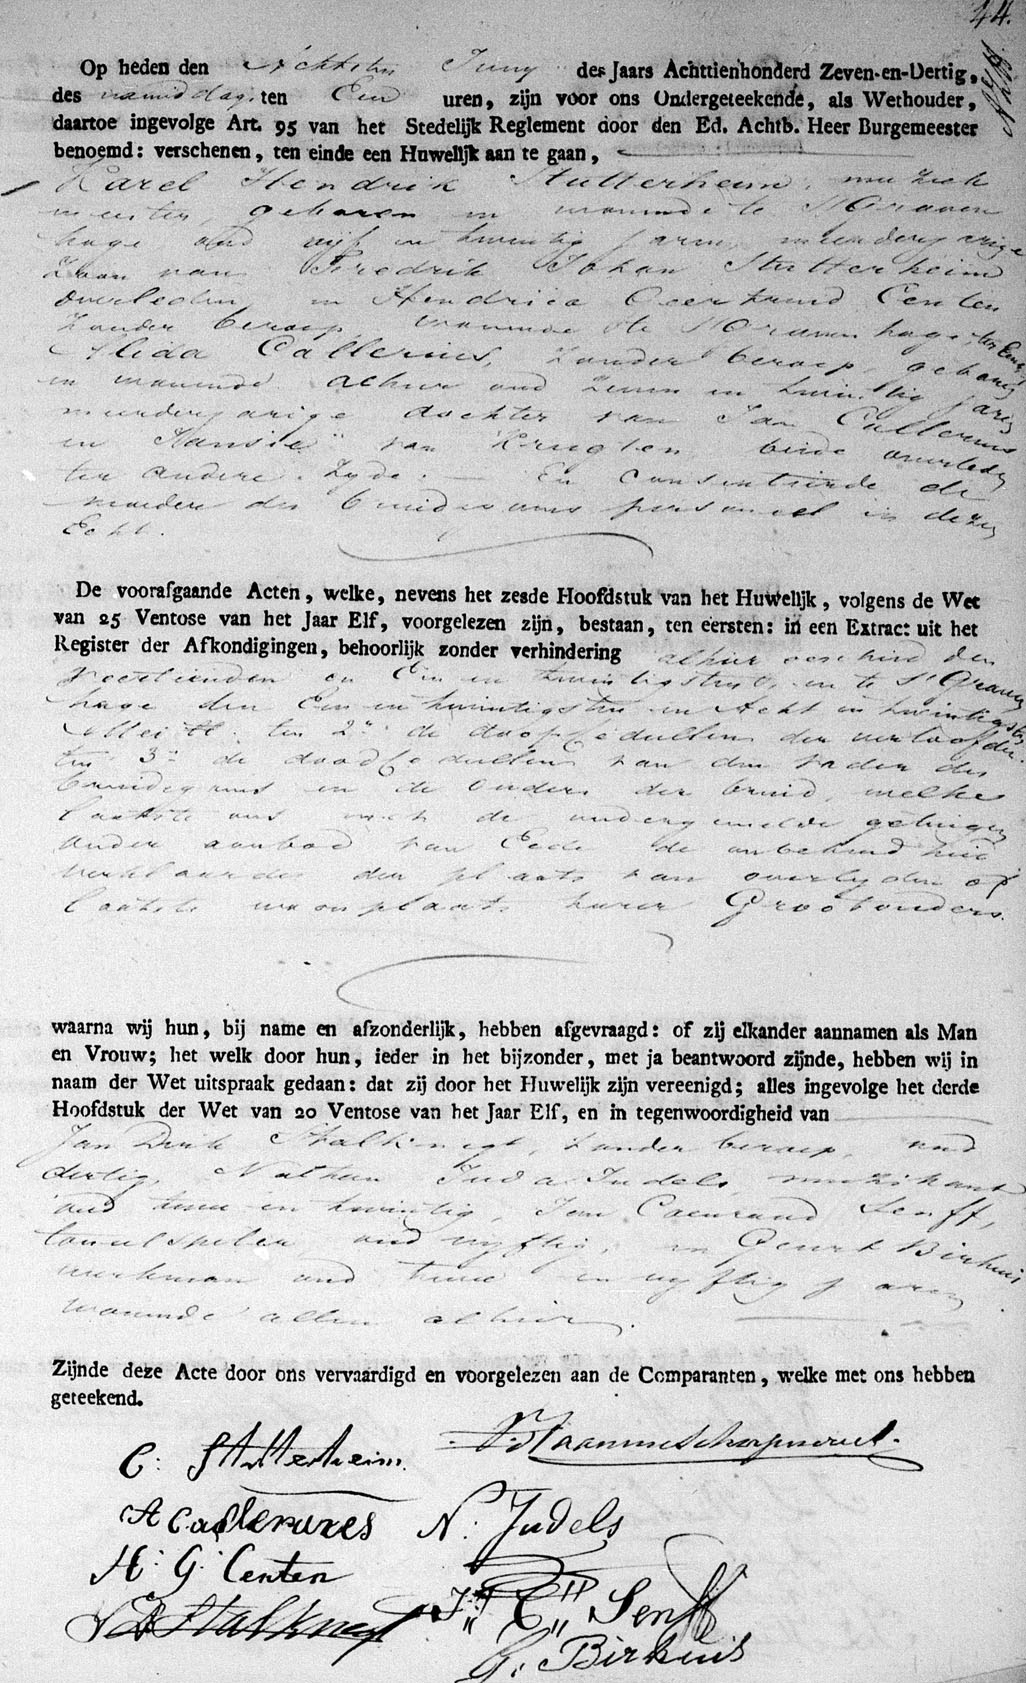 44.
Op heden den Achtsten Juny des Jaars Achttienhonderd Zeven-en-Dertig,
des namiddags ten Een uren, zijn voor ons Ondergeteekende, als Wethouder,
daartoe ingevolge Art. 95 van het Stedelijk Reglement door den Ed. Achtb. Heer Burgemeester
benoemd: verschenen, ten einde een Huwelijk aan te gaan,
Karel Hendrik Stutterheim, muziek
meester, geboren en wonende te S'Graven
hage oud vijf en twintig jaren, meerderjarige
Zoon van Fredrik Johan Stutterheim
overleden, en Hendrica Geertruid Centen
zonder beroep, wonende te S'Gravenhage ter Eenre
Alida Callerius, zonder beroep, geboren
en wonende alhier oud zeven en twintig jaren
meerderjarige dochter van Jan Callerius
en Hansie van Kruglen beide overleden
ter andere Zyde. En Consenteerde de
moeder des bruidegoms personeel in dezen
Echt.
De voorafgaande Acten, welke, nevens het zesde Hoofdstuk van het Huwelijk, volgens de Wet
van 25 Ventose van het Jaar Elf, voorgelezen zijn, bestaan, ten eersten: in een Extract uit het
Register der Afkondigingen, behoorlijk zonder verhindering alhier geschied den
veertienden en Een en twintigsten, en te S'Graven
hage den Een en twintigsten en Acht en twintigsten
Mei ll. ten 2e de doopcedullen der verloofden
ten 3e de doodcedullen van den vader des
bruidegoms en de Ouders der bruid, welke
laatste ons met de ondergemelde getuigen
onder aanbod van Eede de onbekendheid
verklaarden der plaats van overlyden of
laatste woonplaats harer Grootouders.
waarna wij hun, bij name en afzonderlijk, hebben afgevraagd: of zij elkander aannamen als Man
en Vrouw; het welk door hun, ieder in het bijzonder, met ja beantwoord zijnde, hebben wij in
naam der Wet uitspraak gedaan: dat zij door het Huwelijk zijn vereenigd; alles ingevolge het derde
Hoofdstuk der Wet van 20 Ventose van het Jaar Elf, en in tegenwoordigheid van
Jan Derk Stalknegt, zonder beroep, oud
dertig, Nathan Juda Judels, muzikant
oud twee en twintig, Jan Coenraad Senff,
tooneelspeler oud vyftig, en Geurt Birkuis
werkman oud twee en vyftig jaren
wonende allen alhier.
Zijnde deze Acte door ons vervaardigd en voorgelezen aan de Comparanten, welke met ons hebben
geteekend.
C: Stutterheim
A Callerures
N. Judels
H: G: Centen
J D Stalknegt
J: C: Senff
G: Birkuis